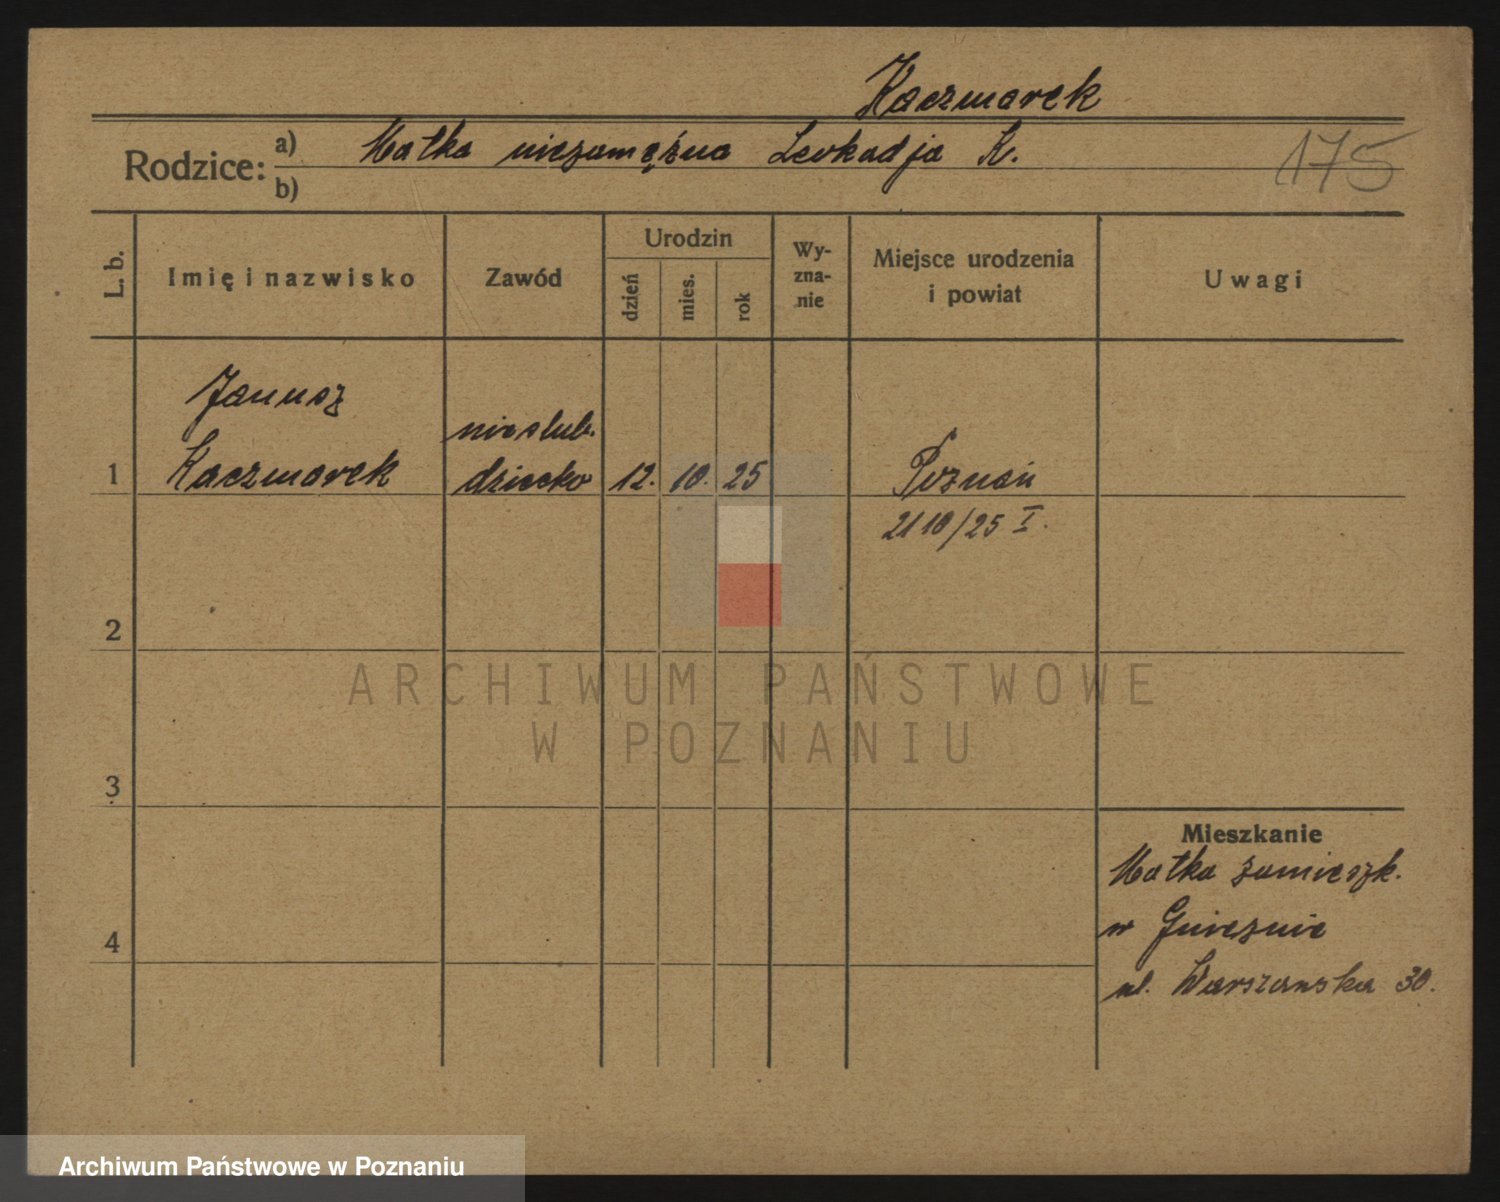 Kaczmarek
Rodzice: a) Matka niezamężna Leokadja K.
175
b)
L. b.
Imię i nazwisko
Zawód
Urodzin
dzień
mies.
rok
Wy-
zna-
nie
Miejsce urodzenia
i powiat
Uwagi
Janusz
nieslub.
1 Kaczmarek dziecko 12. 10. 25 Poznań
2110/25 I.
2
ARCHIWUM PAŃSTWOWE
W POZNANIU
3
Mieszkanie
Matka zamieszk.
w Gnieznie
4
ul. Warszawska 30.
Archiwum Państwowe w Poznaniu